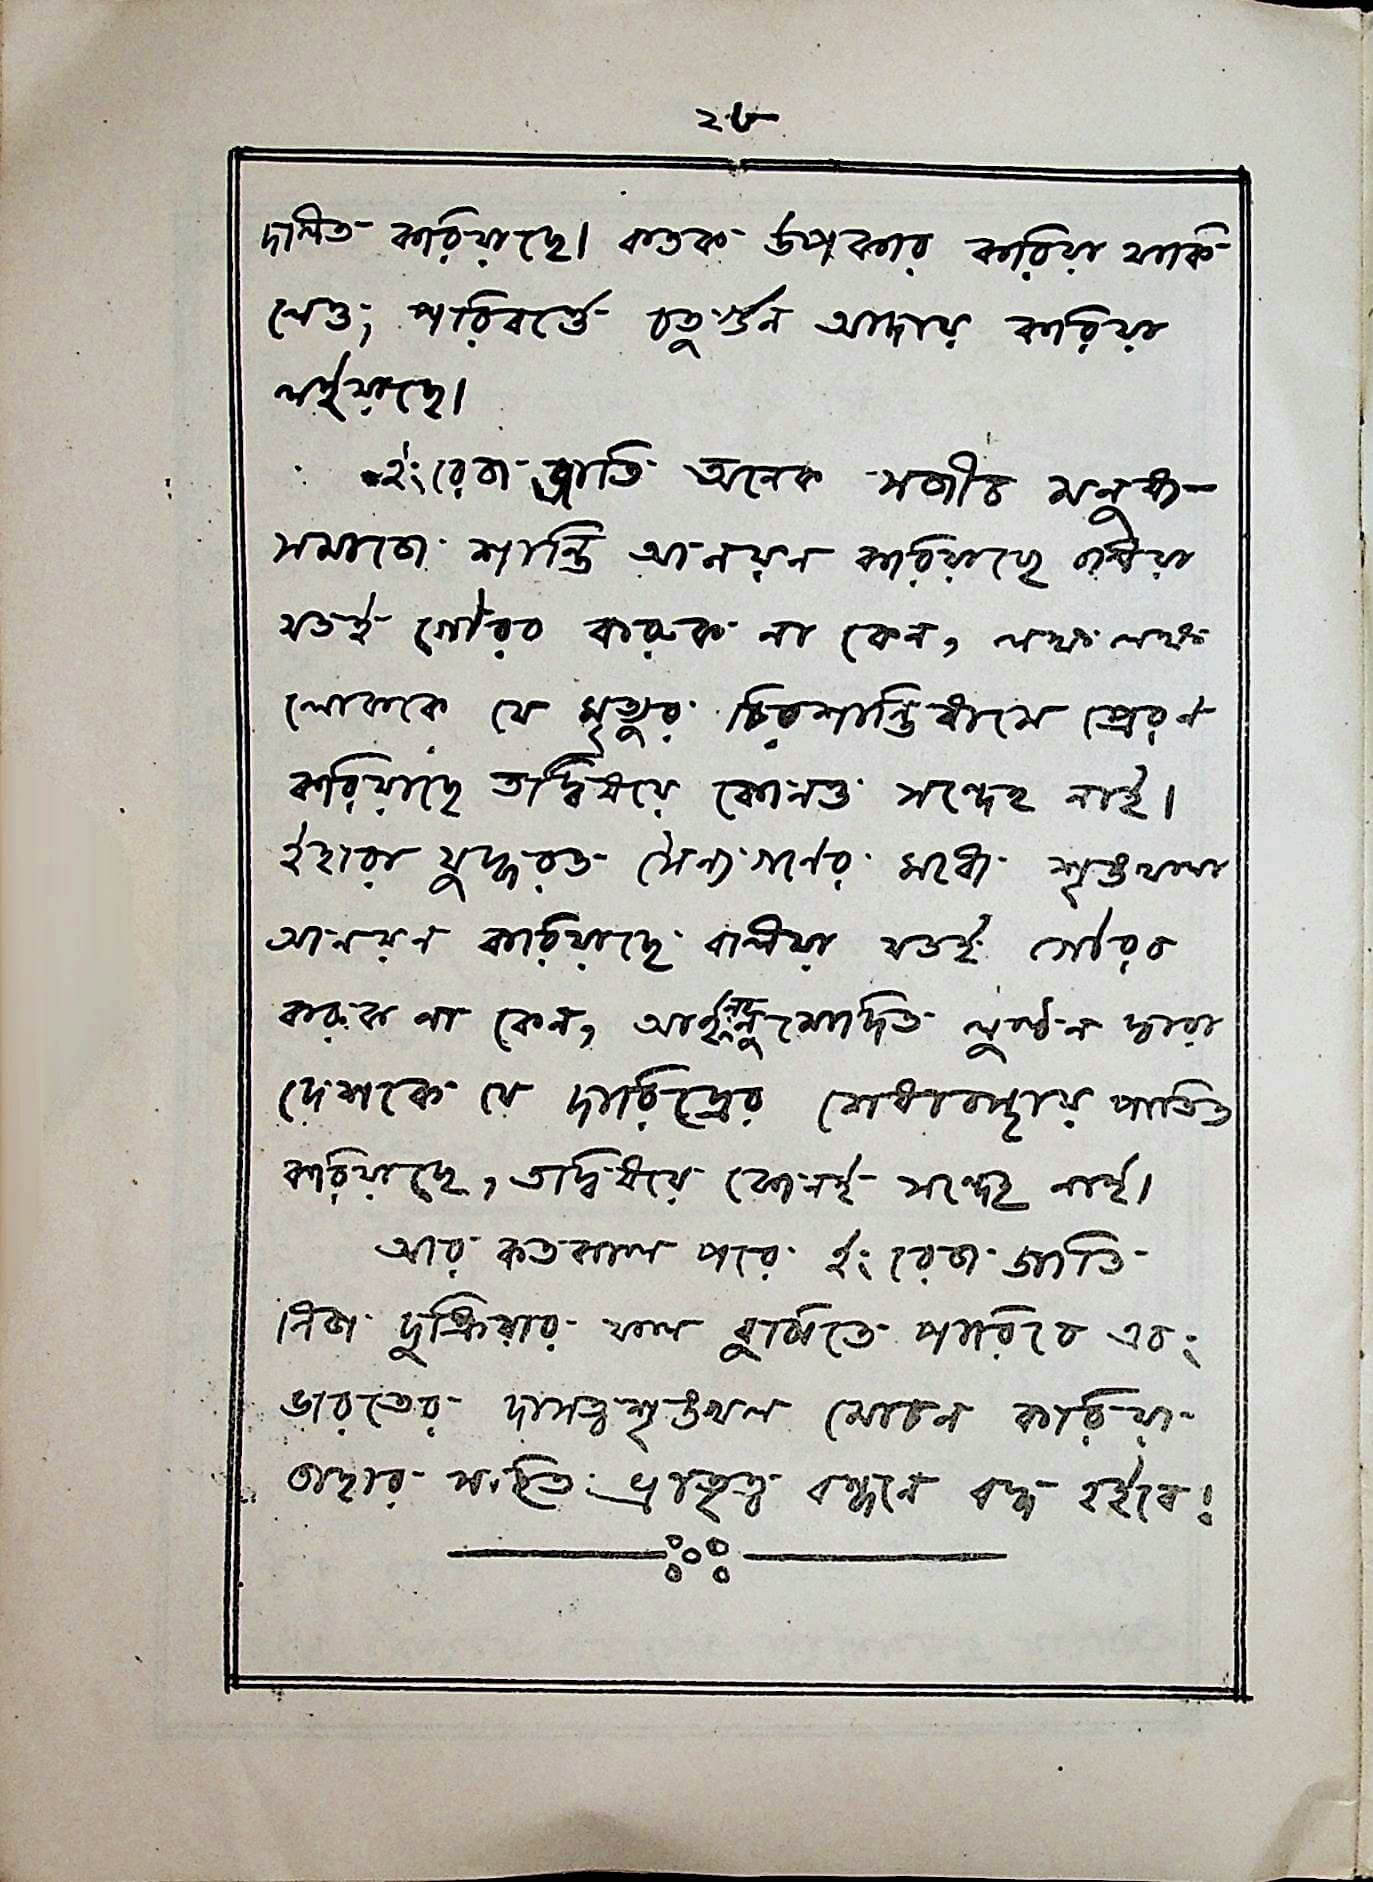 ২৬
দলিত করিয়াছে। কতক উপকার করিয়া থাকি-
লেও, পরিবর্ত্তে চতুর্গুন আদায় করিয়া
লইয়াছে।
ইংরেজ জাতি অনেক সজীব মনুষ্য-
সমাজে শান্তি আনয়ন করিয়াছে বলিয়া
যতই গৌরব করুক না কেন, লক্ষ লক্ষ
লোককে যে মৃত্যুর চিরশান্তিধামে প্রেরণ
করিয়াছে তদ্বিষয়ে কোনও সন্দেহ নাই।
ইহারা যুদ্ধরত সৈন্যগনের মধ্যে শৃঙ্খলা
আনয়ন করিয়াছে বলিয়া যতই গৌরব
করুক না কেন, আইনানুমোদিত লুণ্ঠন দ্বারা
দেশকে যে দারিদ্রের শেষাবস্থায় পাতিত
করিয়াছে, তদ্বিষয়ে কোনই সন্দেহ নাই।
আর কতকাল পরে ইংরেজ জাতি
নিজ দুষ্ক্রিয়ার ফল বুঝিতে পারিবে এবং
ভারতের দাসত্বশৃঙ্খল মোচন করিয়া
তাহার সহিত ভ্রাতৃত্ব বন্ধনে বদ্ধ হইবে!